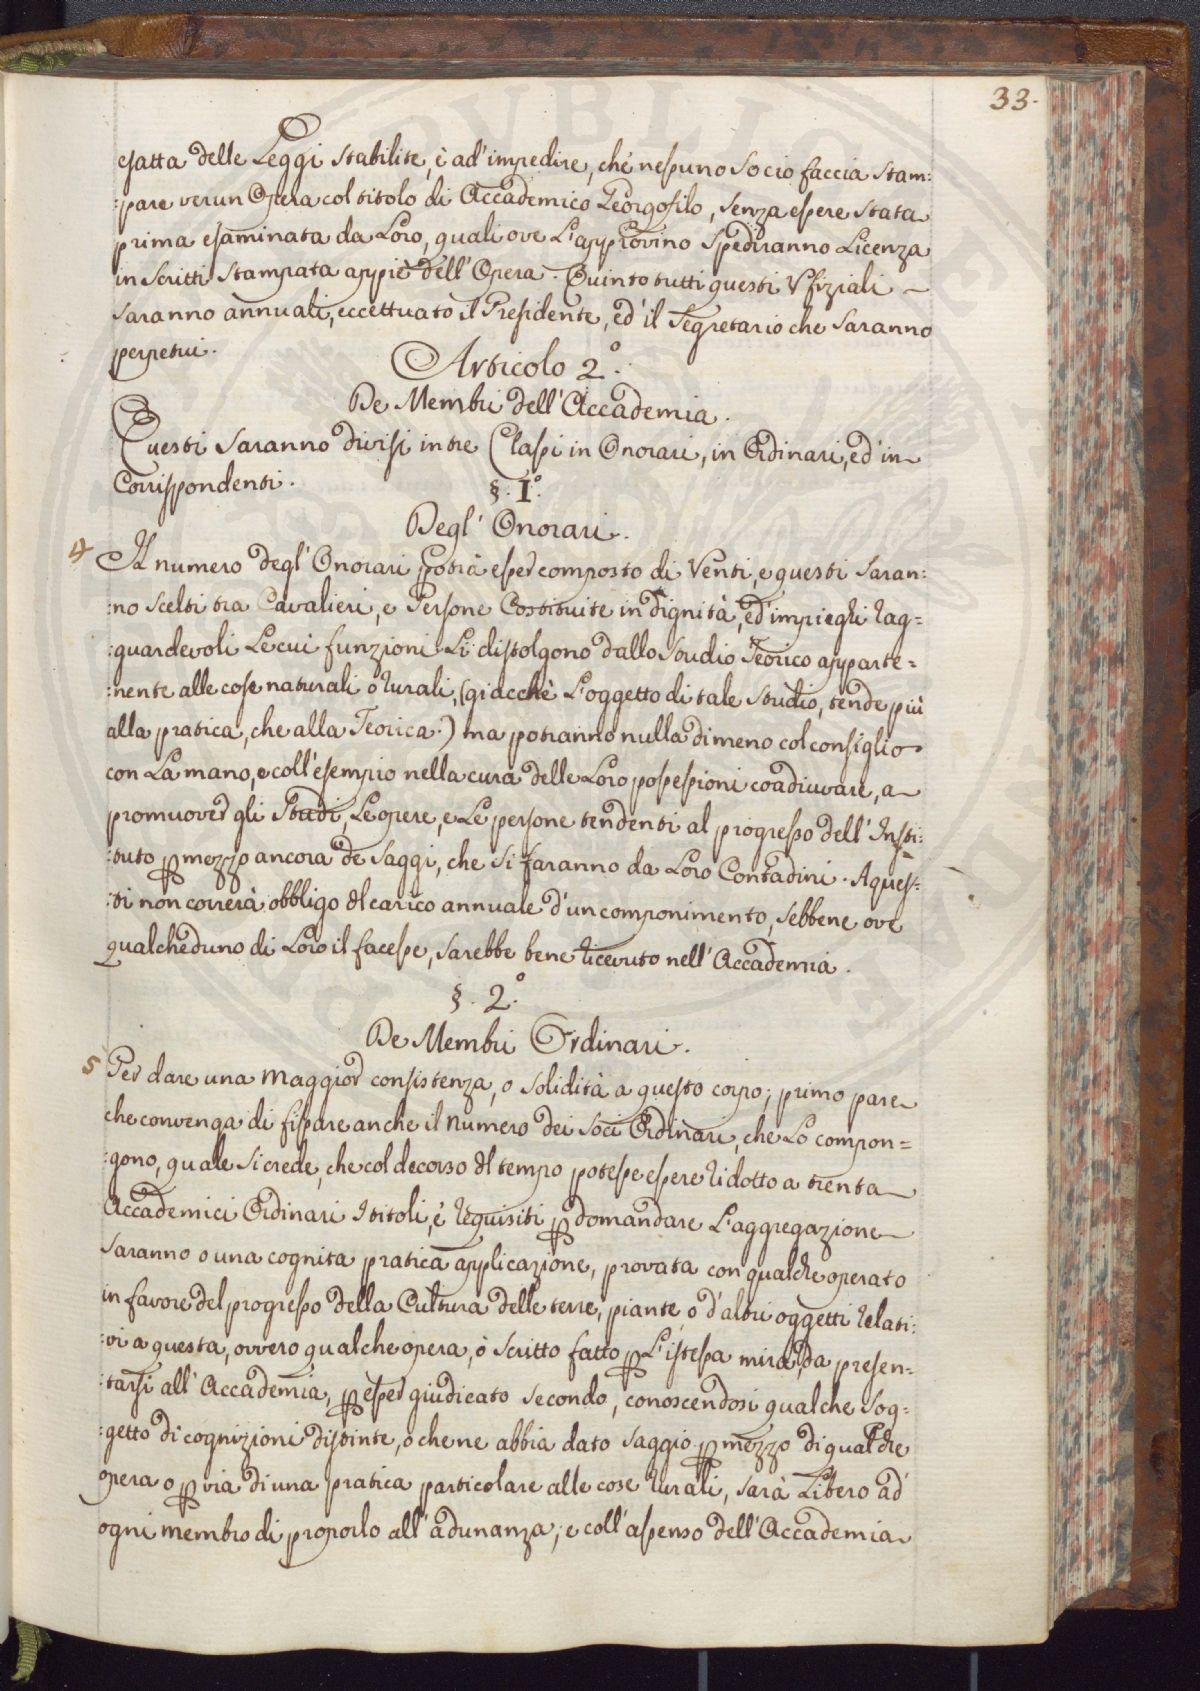 33.
esatta delle Leggi stabilite, è ad'impedire, che nessuno Socio faccia stam:
:pare verun Opera col titolo di Accademico Georgofilo, senza essere stata
prima esaminata da Loro, quali ove L'approvino spediranno Licenza
in scritti stampata appiè dell'Opera. Quinto tutti questi Vfiziali
saranno annuali, eccettuato il Presidente, ed'il Segretario che saranno
perpetui.
Articolo 2.°
De Membri dell'Accademia.
Questi saranno divisi in tre Classi in Onorari, in Ordinari, ed'in
Corrispondenti.
§. I.°
Degl'Onorari.
4 Il numero degl'Onorari potrà esser composto di Venti, e questi saran:
:no scelti tra Cavalieri, e Persone Costituite in dignità, ed'impieghi rag=
:guardevoli Le cui funzioni Li distolgono dallo Studio Teorico apparte=
:nente alle cose naturali o rurali, (giacchè L'oggetto di tale studio, tende più
alla pratica, che alla Teorica.) ma potranno nulla di meno col consiglio
con La mano, e coll'esempio nella cura delle Loro possessioni coadiuvare, a
promuover gli Studi, Le opere, e Le persone tendenti al progresso dell'Insti:
:tuto ꝑ mezzo ancora de saggi, che si faranno da Loro Contadini. A ques=
:ti non correrà obbligo dl carico annuale d'un componimento, sebbene ove
qualcheduno di Loro il facesse, sarebbe bene ricevuto nell'Accademia.
§. 2.°
De Membri Ordinari.
5 Per dare una maggior consistenza, o solidità a questo corpo; primo pare
che convenga di fissare anche il numero dei Soci Ordinari, che Lo compon=
:gono, quale si crede, che col decorso dl tempo potesse essere ridotto a trenta
Accademici Ordinari I titoli, e requisiti ꝑ domandare L'aggregazione
saranno o una cognita pratica applicazione, provata con qualche operato
in favore del progresso della Cultura delle terre, piante, o d'altri oggetti relati:
:vi a questa, ovvero qualche opera, ò scritto fatto ꝑ L'istessa mira, da presen=
:tarsi all'Accademia, ꝑ esser giudicato secondo, conoscendosi qualche sog=
:getto di cognizioni distinte, o che ne abbia dato saggio ꝑ mezzo di qualche
opera o ꝑ via di una pratica particolare alle cose rurali, sarà Libero ad
ogni membro di proporlo all'adunanza; e coll'assenso dell'Accademia